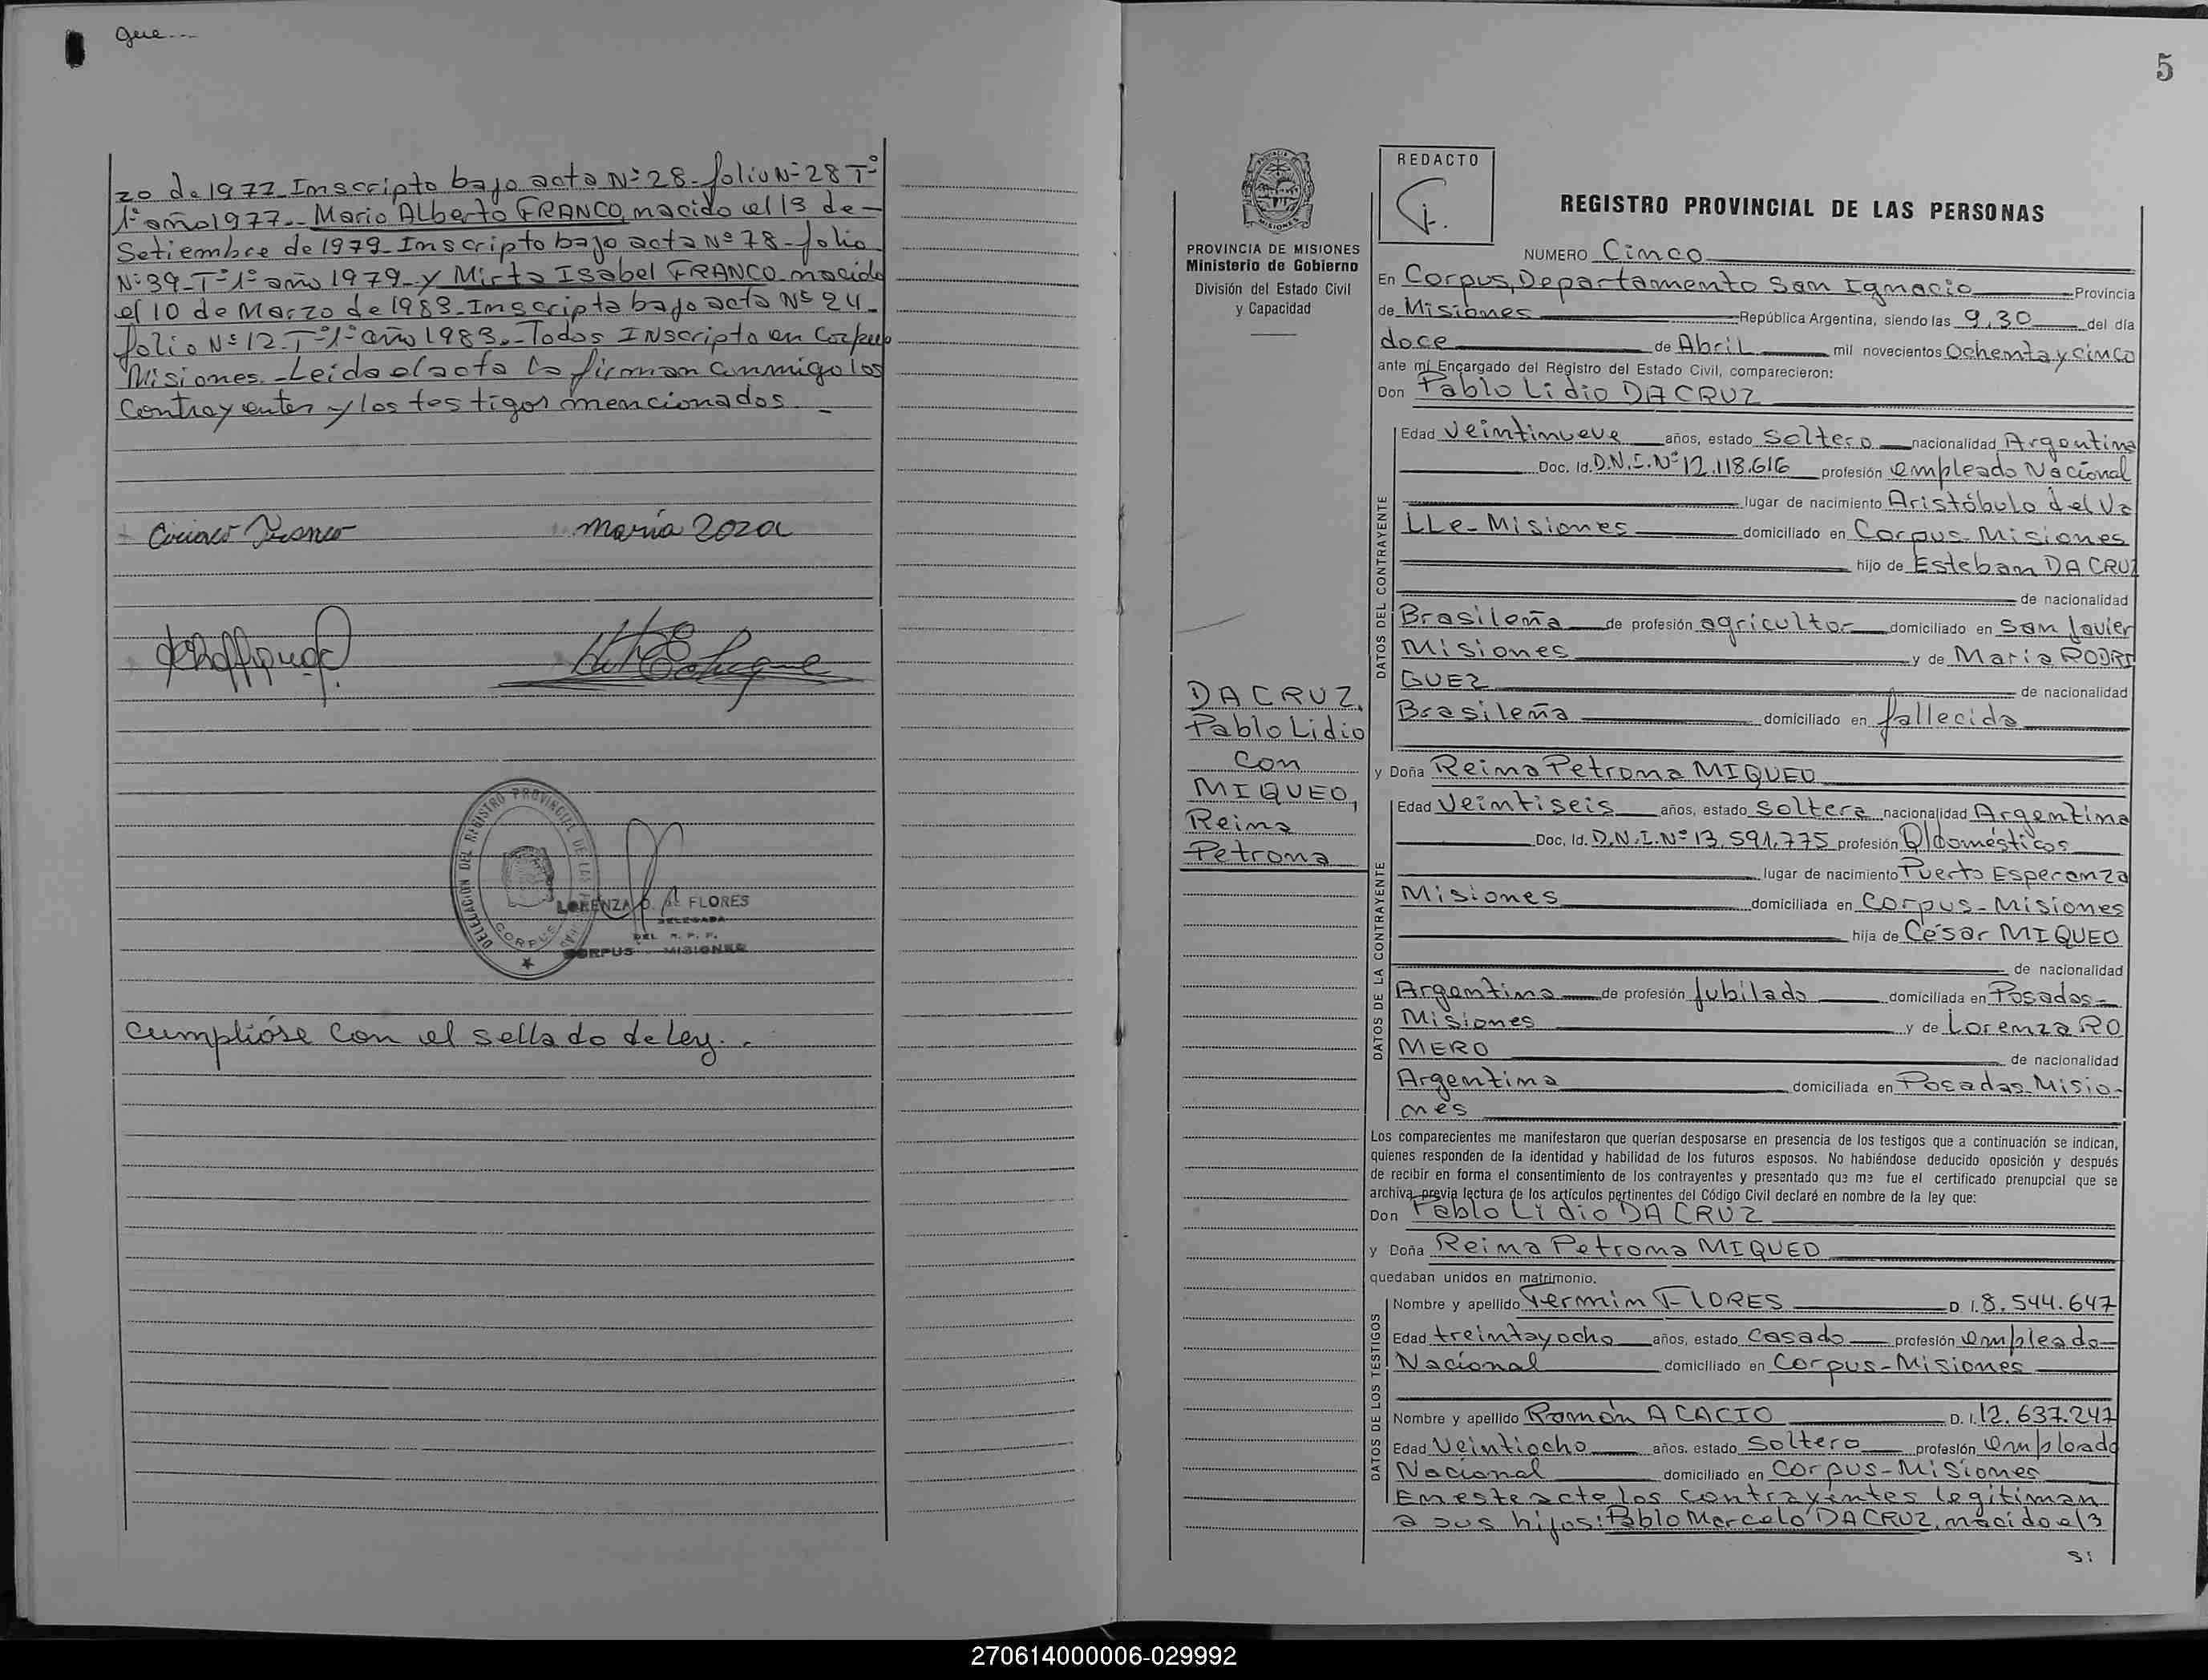 que...
zo de 1977 Inscripto bajo acta Nº 28 - folio Nº 28 Tº
1º año 1977.- Mario Alberto FRANCO, nacido el 13 de -
Setiembre de 1979 - Inscripto bajo acta Nº 78 - folio
Nº 39 - Tº 1º año 1979 - y Mirta Isabel FRANCO - nacida
el 10 de Marzo de 1983 - Inscripta bajo acta Nº 24 -
folio Nº 12 - Tº 1º año 1983.- Todos Inscripto en Corpus
Misiones.- Leida el acta la firman conmigo los
Contrayentes y los testigos mencionados. -
Ciriaco Franco
maría Zoza
DELEGACIÓN DEL REGISTRO PROVINCIAL DE LAS
CORPUS
LORENZA D. de FLORES
DELEGADA
DEL R. P. P.
CORPUS MISIONES
Cumplióse con el sellado de Ley. -
5
PROVINCIA DE MISIONES
Ministerio de Gobierno
División del Estado Civil
y Capacidad
DA CRUZ,
Pablo Lidio
Con
MIQUEO,
Reina
Petrona
REDACTO
REGISTRO PROVINCIAL DE LAS PERSONAS
NUMERO Cinco
En Corpus, Departamento San Ignacio Provincia
de Misiones República Argentina, siendo las 9,30 del día
doce de Abril mil novecientos Ochenta y cinco
ante mí Encargado del Registro del Estado Civil, comparecieron:
Don Pablo Lidio DA CRUZ
DATOS DEL CONTRAYENTE
Edad Veintinueve años, estado Soltero nacionalidad Argentina
Doc. Id. D.N.I. Nº 12.118.616 profesión empleado Nacional
lugar de nacimiento Aristóbulo del Va
LLe - Misiones domiciliado en Corpus - Misiones
hijo de Esteban DA CRUZ
de nacionalidad
Brasileña de profesión agricultor domiciliado en San Javier
Misiones y de María RODRI
GUEZ de nacionalidad
Brasileña domiciliado en fallecida
y Doña Reina Petrona MIQUEO
DATOS DE LA CONTRAYENTE
Edad Veintiseis años, estado soltera nacionalidad Argentina
Doc. Id. D.N.I. Nº 13.591.775 profesión Q/domésticos
lugar de nacimiento Puerto Esperanza
Misiones domiciliada en Corpus - Misiones
hija de César MIQUEO
de nacionalidad
Argentina de profesión Jubilado domiciliada en Posadas -
Misiones y de Lorenza RO
MERO de nacionalidad
Argentina domiciliada en Posadas - Misio-
nes
Los comparecientes me manifestaron que querían desposarse en presencia de los testigos que a continuación se indican,
quienes responden de la identidad y habilidad de los futuros esposos. No habiéndose deducido oposición y después
de recibir en forma el consentimiento de los contrayentes y presentado que me fue el certificado prenupcial que se
archiva previa lectura de los artículos pertinentes del Código Civil declaré en nombre de la ley que:
Don Pablo Lidio DA CRUZ
y Doña Reina Petrona MIQUEO
quedaban unidos en matrimonio.
DATOS DE LOS TESTIGOS
Nombre y apellido Fermin FLORES D. I. 8.544.647
Edad treinta y ocho años, estado Casado profesión empleado
Nacional domiciliado en Corpus - Misiones
Nombre y apellido Ramón ACACIO D. I. 12.637.247
Edad Veintiocho años, estado Soltero profesión empleado
Nacional domiciliado en Corpus - Misiones
En este acto los contrayentes legitiman
a sus hijos: Pablo Marcelo DA CRUZ, nacido el 3
Si
270614000006-029992